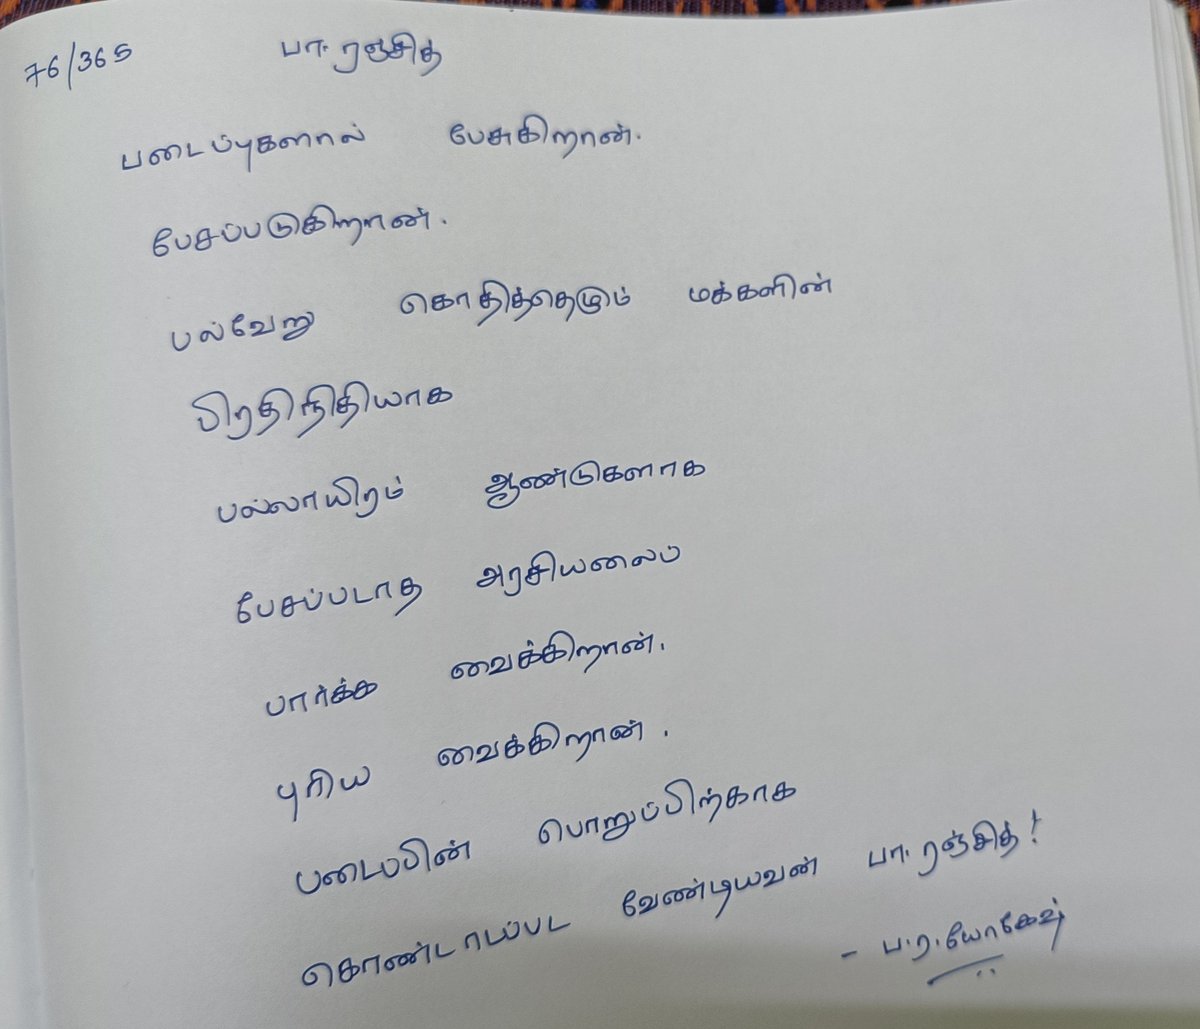 76/365 பா. ரஞ்சித்
படைப்புகளால் பேசுகிறான்.
பேசப்படுகிறான்.
பல்வேறு கொதித்தெழும் மக்களின்
பிரதிநிதியாக
பல்லாயிரம் ஆண்டுகளாக
பேசப்படாத அரசியலைப்
பார்க்க வைக்கிறான்.
புரிய வைக்கிறான்.
படைப்பின் பொறுப்பிற்காக
கொண்டாடப்பட வேண்டியவன் பா. ரஞ்சித்!
- ப.ர.யோகேஷ்